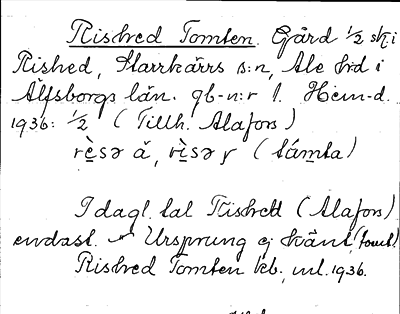 Risked Tomten. Gård 1/2 sk. i
Rished, Starrkärrs s:n, Ale hd i
Älfsborgs län. gb-n:r 1. Hem-d.
1936: 1/2 (Tillh. Alafors)
rèsə å, rèsər (támta)
I dagl. tal Risked (Alafors)
endast. Ursprung ej känt,
Risked Tomten kb, ml. 1936.